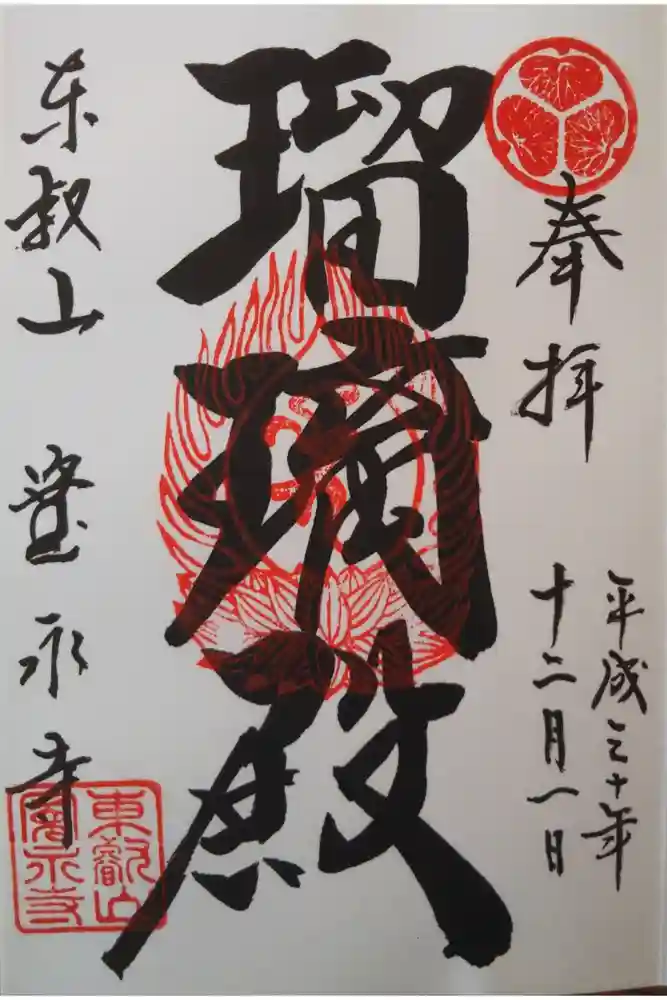 奉拝
平成三十年
十二月一日
瑠璃殿
东叡山 寛永寺
東叡山
寛永寺